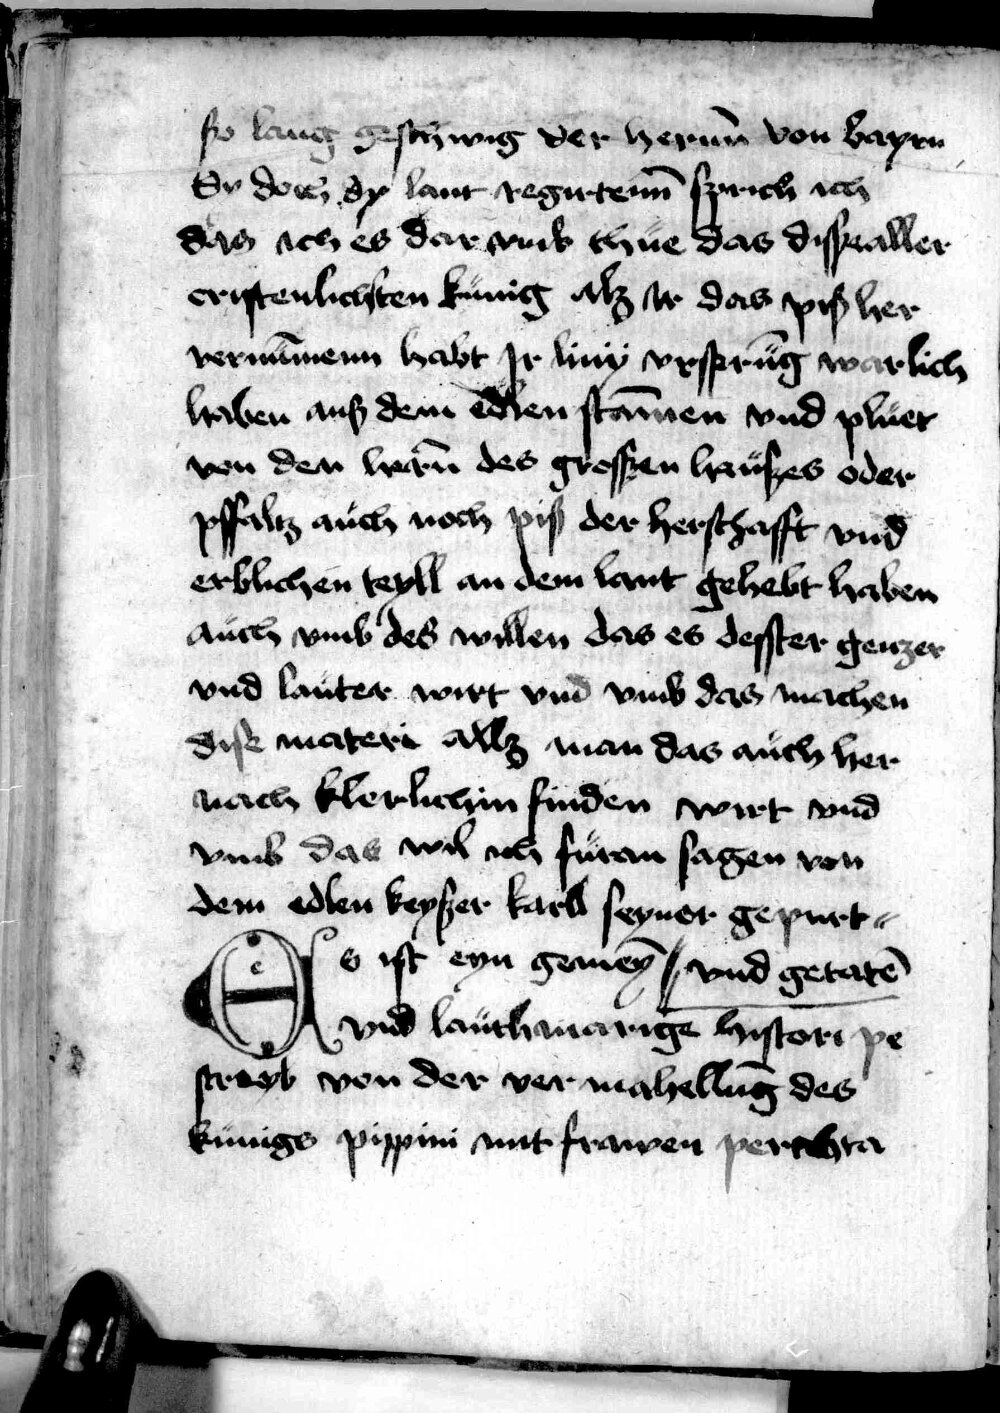 so lang geschwig der herrn̄ von bayrn
Dy doch dy lant regirtenn̄ sprich ich
das ich es dar vmb thüe das disse aller
cristenlichsten künig alz ir das piß her
vernūmenn habt Jr liny vrsprūg warlich
haben auß dem edlen stāmen vnd pluet
von den herrn̄ des grossen haußes oder
pffaltz auch noch piß der herschafft vnd
erblichen teyll an dem lant gehebt haben
auch vmb des willen das es desster genzer
vnd lauter wirt vnd vmb das machen
dise materi allz man das auch her
nach klerlichin finden wirt vnd
vmb das wil ich füran sagen von
dem edlen keyßer karll seyner gepurt
Es ist eyn gemeȳ vnd getatē
vnd lauthmarige histori pe
screyb von der vermahellūg des
künigs pippini mit frawen perchta